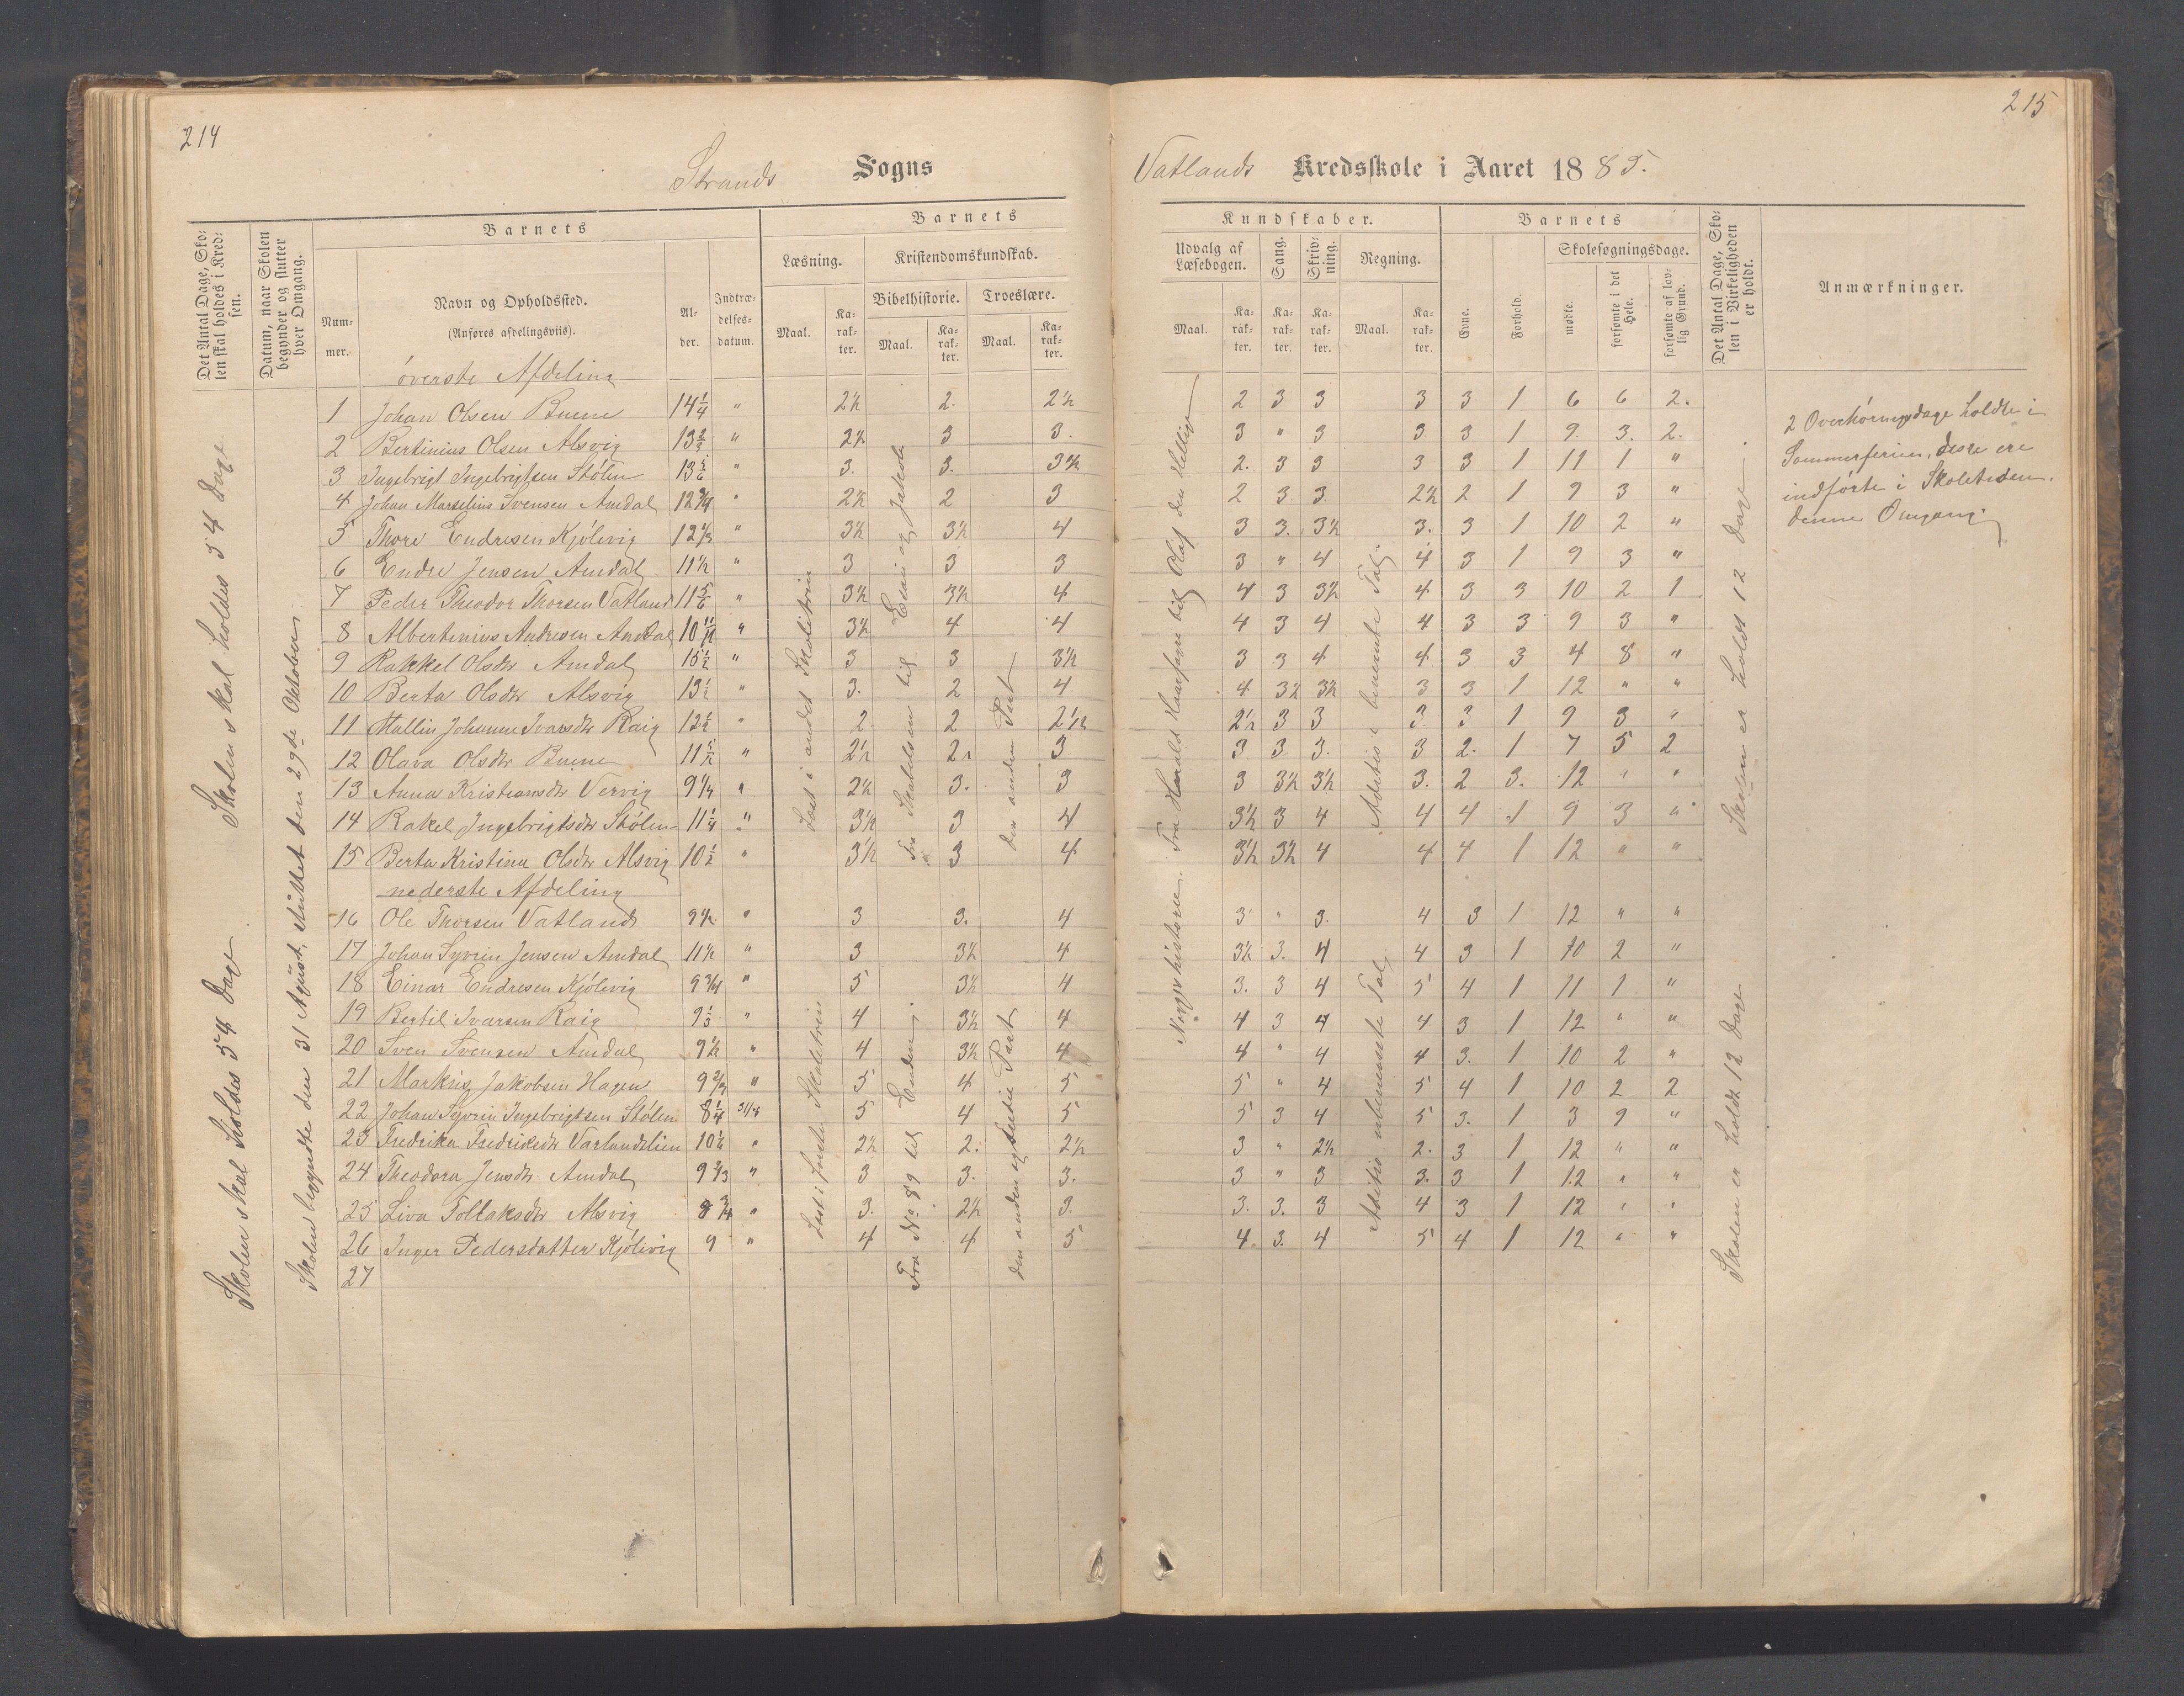 214
215
Strands Sogns
Vatlands Kredsskole i Aaret 1885.
Det Antal Dage, Skolen skal holdes i Kredsen.
Datum, naar Skolen begynder og slutter hver Omgang.
Barnets
Nummer.
Navn og Opholdssted.
(Anføres afdelingsviis).
Alder.
Indtrædelsesdatum.
Barnets
Læsning.
Kristendomskundskab.
Bibelhistorie.
Troeslære.
Maal.
Karakter.
Maal.
Karakter.
Maal.
Karakter.
Kundskaber.
Udvalg af Læsebogen.
Sang.
Skrivning.
Regning.
Maal.
Karakter.
Karakter.
Karakter.
Maal.
Karakter.
Barnets
Evne.
Forhold.
Skolesøgningsdage.
mødte.
forsømte i det Hele.
forsømte af lovlig Grund.
Det Antal Dage, Skolen i Virkeligheden er holdt.
Anmærkninger.
øverste Afdeling
1 Johan Olsen Buene 14 1/4 " 2½ 2. 2½ 2 3 3 3 3 1 6 6 2.
2 Bertinius Olsen Alsvig 13 2/3 " 2½ 3 3. 3 " 3 3 3 1 9 3. 2.
3 Ingebrigt Ingebrigtsen Stølen 13 5/6 " 3. 3. 3½ 2. 3 3 3 3 1 11 1 "
4 Johan Marselius Svensen Amdal 12 3/4 " 2½ 2 3 2 3 3 2½ 2 1 9 3 "
5 Thore Endresen Kjølevig 12 1/3 " 3½ 3½ 4 3 3. 3½ 3. 3 1 10 2 "
6 Endre Jensen Amdal 11½ " 3 3 3 3 " 4 4 3 1 9 3 "
7 Peder Theodor Thorsen Vatland 11 5/6 " 3½ 3½ 4 4 3 3½ 4 3 3 10 2 1
8 Albertinius Andresen Amdal 10 11/12 " 3½ 4 4 4 3 4 4 3 3 9 3 "
9 Rakkel Olsdtr Amdal 15½ " 3 3 3½ 3 3 4 4 3 3 4 8 "
10 Berta Olsdtr Alsvig 13½ " 3. 2 4 4 3½ 3½ 3 3 1 12 " "
11 Hallin Johanne Ivarsdtr Raig 12½ " 2 2 2½ 2½ 3 3 3 3 1 9 3 "
12 Olava Olsdtr Buene 11 5/12 " 2½ 2½ 3 3 3 3. 3 2. 1 7 5 2
13 Anna Kristiansdtr Vervig 9 1/4 " 2½ 3. 3 3 3½ 3½ 3. 2 3. 12 " "
14 Rakel Ingebrigtsdtr Stølen 11 1/4 " 3½ 3 4 3½ 3 4 4 4 1 9 3 "
15 Berta Kristina Olsdtr Alsvig 10½ " 3½ 3 4 3½ 3½ 4 4 4 1 12 " "
nederste Afdeling
16 Ole Thorsen Vatland 9½ " 3 3. 4 3 " 3. 4 3 1 12 " "
17 Johan Syvrin Jensen Amdal 11½ " 3 3½ 4 3½ 3. 4 4 3 1 10 2 "
18 Einar Endresen Kjølevig 9 3/4 " 5 3½ 4 3. 3 4 5 4 1 11 1 "
19 Bertil Ivarsen Raig 9 1/3 " 4 3½ 4 4 3 4 4 3 1 12 " "
20 Sven Svensen Amdal 9½ " 4 3½ 4 4 " 4 4 3. 1 10 2 "
21 Markus Jakobsen Hagen 9 2/3 " 5 4 5 5 " 4 5 4 1 10 2 2
22 Johan Syvrin Ingebrigtsen Stølen 8 1/4 31/8 5 4 5 5 3 4 5 3. 1 3 9 "
23 Fredrika Fredriksdtr Varlandslien 10 1/6 " 2½ 2. 2½ 3 " 2½ 2. 3 1 12 " "
24 Theodora Jensdtr Amdal 9 2/3 " 3 3. 3. 3 " 3 3. 3 1 12 " "
25 Liva Tollaksdtr Alsvig 8 3/4 " 3. 2½ 3. 3. 3. 3 4 3 1 12 " "
26 Inger Pedersdatter Kjølevig 9 " 4 4 5 4. 3. 4 5 4 1 12 " "
27
Skolen skal holdes 54 Dage
Skolen skal holdes 54 Dage
Skolen begyndte den 31 August, sluttet den 29de Oktober
Læst i andet Skoletrin
Læst i første Skoletrin
Fra Skabelsen til Esau og Jakob
Fra No 89 til Enden
den anden Part
den anden og tredie Part
Norges historie. Fra Harald Haarfagre til Olaf den Hellige
Addition i benævnte Tal
Addition ubenævnte Tal
Skolen er holdt 12 Dage
Skolen er holdt 12 Dage
2 Overhøringsdage holdte i
Sommerferien, disse ere
indførte i Skoletiden
denne Omgang.